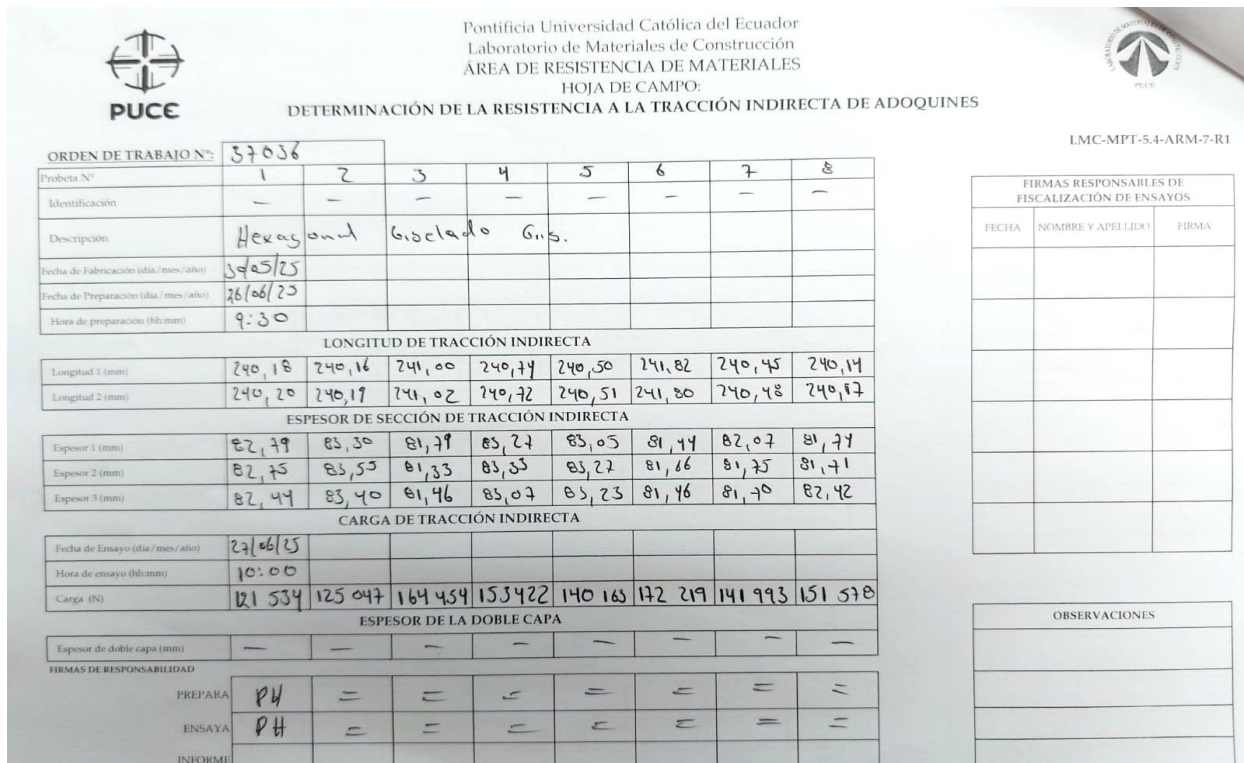 Pontificia Universidad Católica del Ecuador
Laboratorio de Materiales de Construcción
ÁREA DE RESISTENCIA DE MATERIALES
HOJA DE CAMPO:
DETERMINACIÓN DE LA RESISTENCIA A LA TRACCIÓN INDIRECTA DE ADOQUINES
PUCE
PUCE
LMC-MPT-5.4-ARM-7-R1
ORDEN DE TRABAJO Nº: 37036
Probeta Nº 1 2 3 4 5 6 7 8
Identificación — — — — — — — —
Descripción Hexagonal Gris.
Fecha de Fabricación (día/mes/año) 30/05/25
Fecha de Preparación (día/mes/año) 26/06/25
Hora de preparación (hh:mm) 9:30
LONGITUD DE TRACCIÓN INDIRECTA
Longitud 1 (mm) 240,18 240,16 241,00 240,74 240,50 241,82 240,45 240,14
Longitud 2 (mm) 240,20 240,19 241,02 240,72 240,51 241,80 240,48 240,17
ESPESOR DE SECCIÓN DE TRACCIÓN INDIRECTA
Espesor 1 (mm) 82,79 83,30 81,79 83,27 83,05 81,44 82,07 81,74
Espesor 2 (mm) 82,75 83,55 81,33 83,33 83,27 81,66 81,75 81,71
Espesor 3 (mm) 82,44 83,40 81,46 83,07 83,23 81,46 81,70 82,42
CARGA DE TRACCIÓN INDIRECTA
Fecha de Ensayo (día/mes/año) 27/06/25
Hora de ensayo (hh:mm) 10:00
Carga (N) 121 534 125 047 164 454 153422 140 163 172 219 141 993 151 578
ESPESOR DE LA DOBLE CAPA
Espesor de doble capa (mm) — — — — — — — —
FIRMAS DE RESPONSABILIDAD
PREPARA PH = = = = = = =
ENSAYA PH = = = = = = =
INFORME
FIRMAS RESPONSABLES DE
FISCALIZACIÓN DE ENSAYOS
FECHA NOMBRE Y APELLIDO FIRMA
OBSERVACIONES